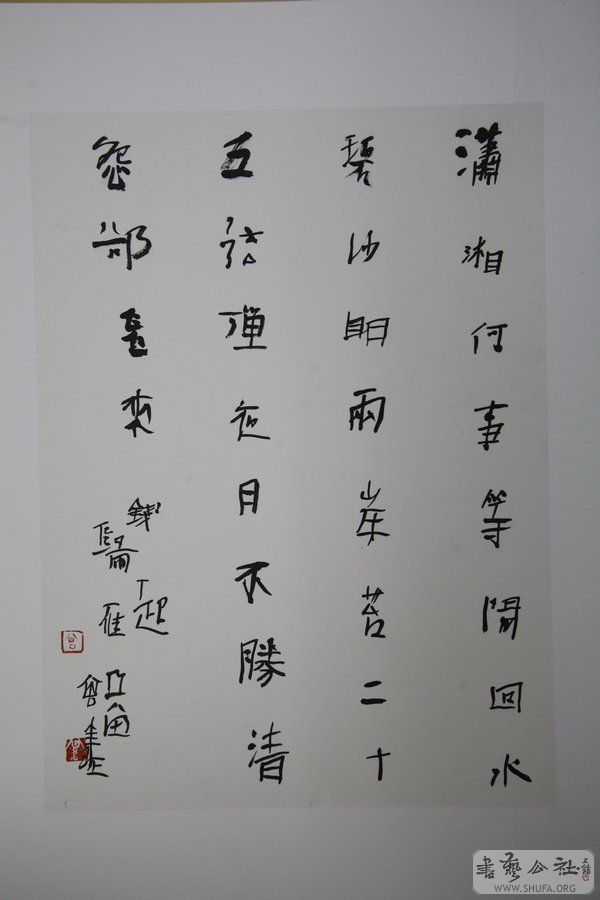 瀟湘何事等閒回水
碧沙明兩岸苔二十
五弦彈夜月不勝清
怨卻飛來
錢起
歸雁
書藝公社
WWW.SHUFA.ORG